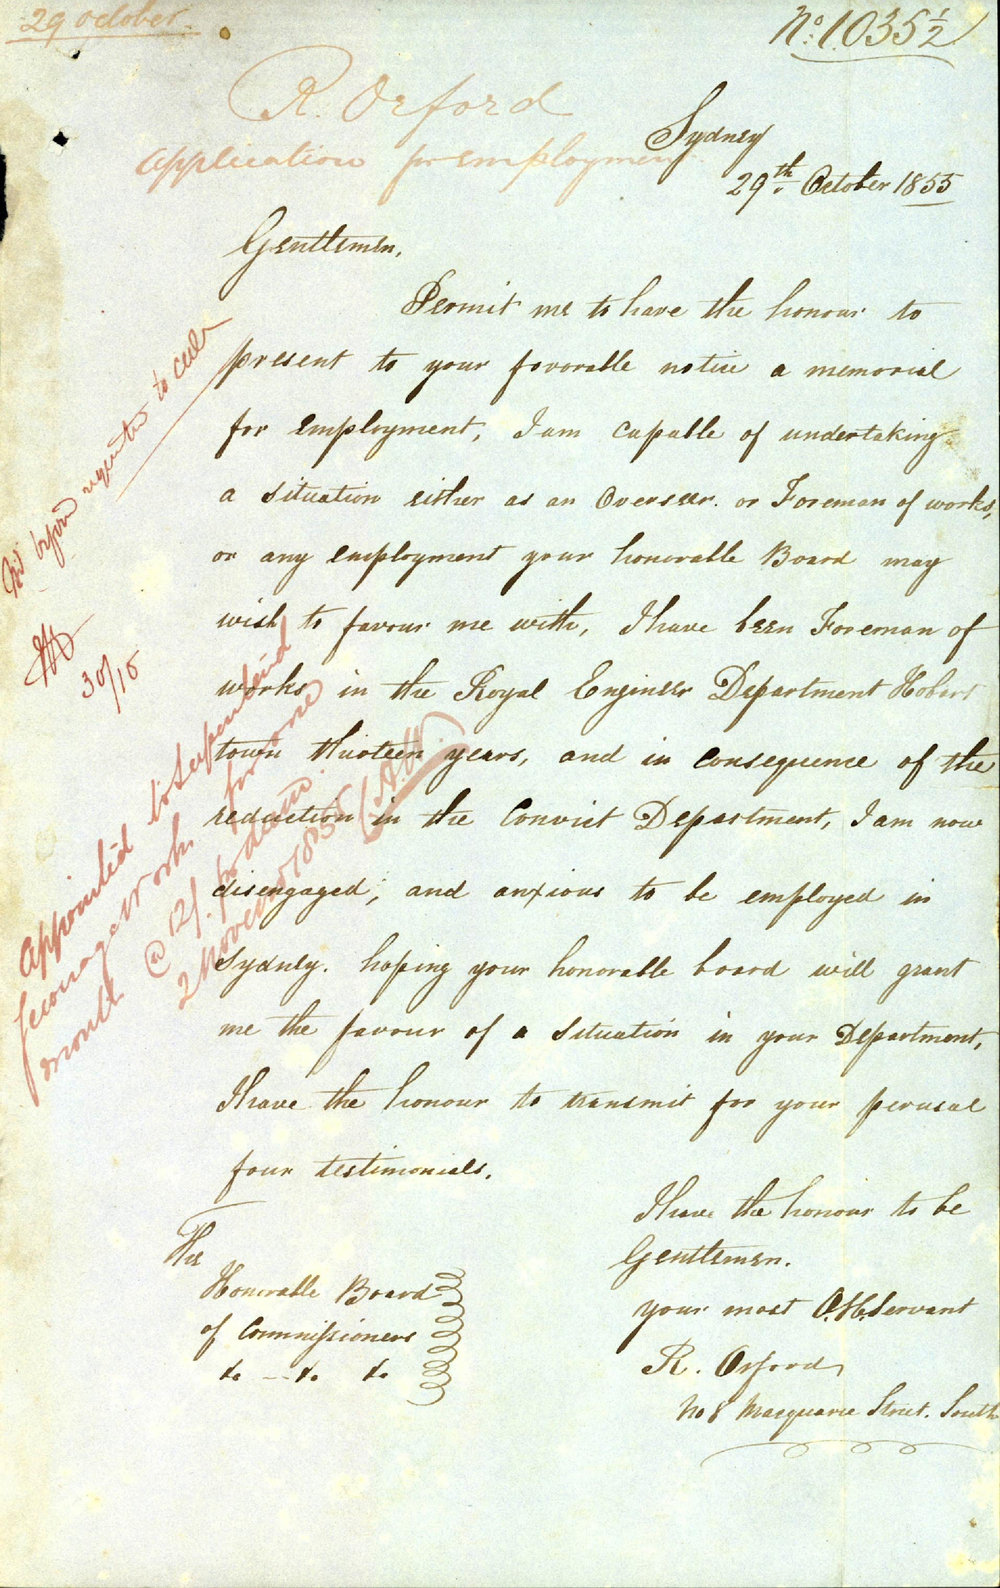 29 October
No. 1035½
R. Orford
Application for employment
Sydney
29th October 1855
Gentlemen,
Permit me to have the honour to
present to your favorable notice a memorial
for employment, I am capable of undertaking
a situation either as an Overseer. or Foreman of works,
or any employment your honorable Board may
wish to favour me with, I have been Foreman of
works in the Royal Engineer Department Hobart
town thirteen years, and in consequence of the
reduction in the Convict Department, I am now
disengaged, and anxious to be employed in
Sydney. hoping your honorable board will grant
me the favour of a situation in your Department,
I have the honour to transmit for your perusal
four testimonials.
I have the honour to be
Gentlemen.
your most O.H.Servant
R. Orford
No 8 Macquarie Street. South
The
Honorable Board
of Commissioners
&c -- &c &c
requested to call
30/10
Appointed to Superintend
Sewerage Works for one
month @ 12/. per diem.
2 November 1855